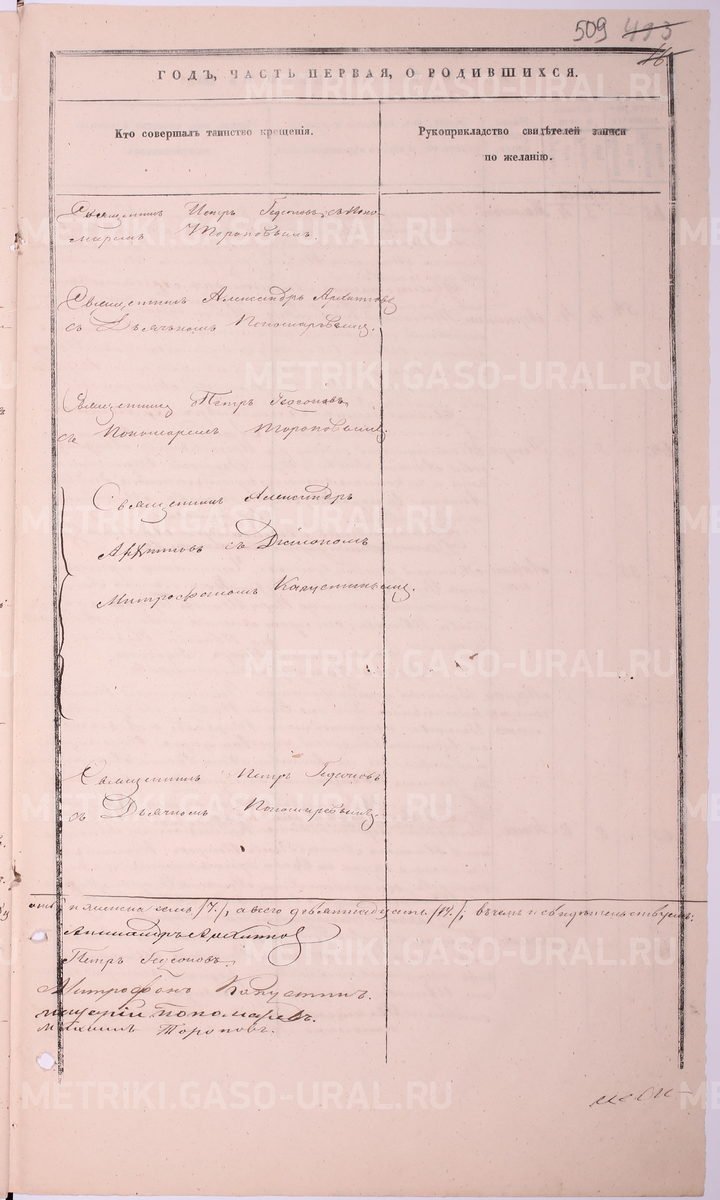 509 413
16
ГОДЪ, ЧАСТЬ ПЕРВАЯ, О РОДИВШИХСЯ.
Кто совершалъ таинство крещенія.
Рукоприкладство свидѣтелей записи
по желанію.
Священникъ Петръ Гедеоновъ, съ Поно-
маремъ Тороповымъ.
Священникъ Александръ
съ Дьячкомъ Пономаревымъ.
Священникъ Петръ Гедеоновъ
съ Пономаремъ Тороповымъ.
Священникъ Александръ
съ Діакономъ
Митрофаномъ Капустинымъ.
Священникъ Петръ Гедеоновъ
съ Дьячкомъ Пономаревымъ.
женска семь /7./, а всего девятнадцать /19./, въ чемъ и свидѣтельствуемъ:
Петръ Гедеоновъ.
Митрофанъ Капустинъ.
Пономаревъ.
Михаилъ Тороповъ.
METRIKI.GASO-URAL.RU